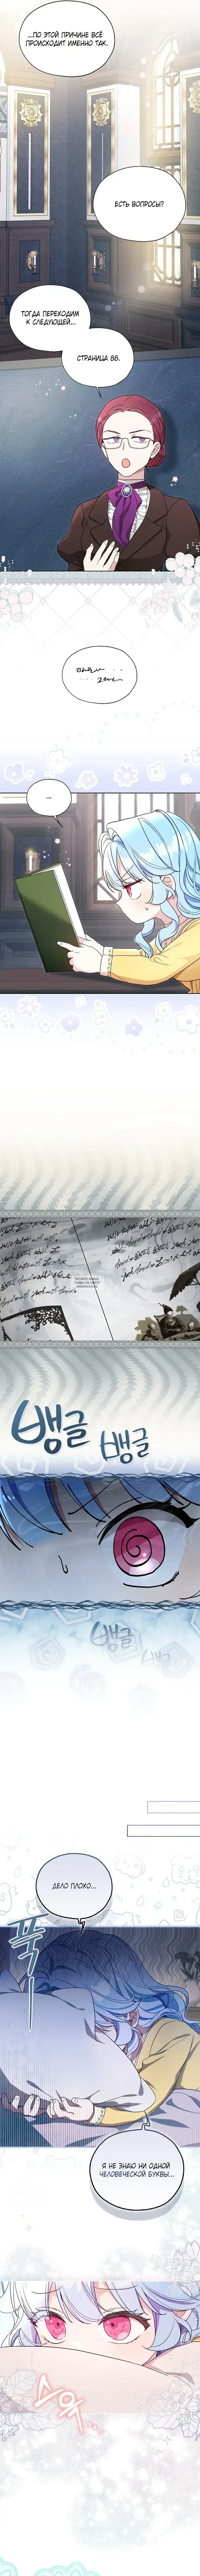 ...ПО ЭТОЙ ПРИЧИНЕ ВСЁ
ПРОИСХОДИТ ИМЕННО ТАК.
ЕСТЬ ВОПРОСЫ?
ТОГДА ПЕРЕХОДИМ
К СЛЕДУЮЩЕЙ...
СТРАНИЦА 88.
...
뱅글
뱅글
뱅글
뱅글
ДЕЛО ПЛОХО...
푹
Я НЕ ЗНАЮ НИ ОДНОЙ
ЧЕЛОВЕЧЕСКОЙ БУКВЫ...
스윽